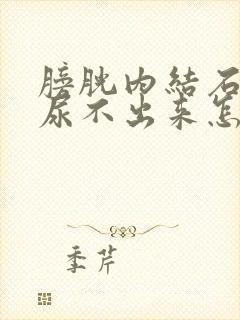 膀胱内結石
尿不出来怎
季芹